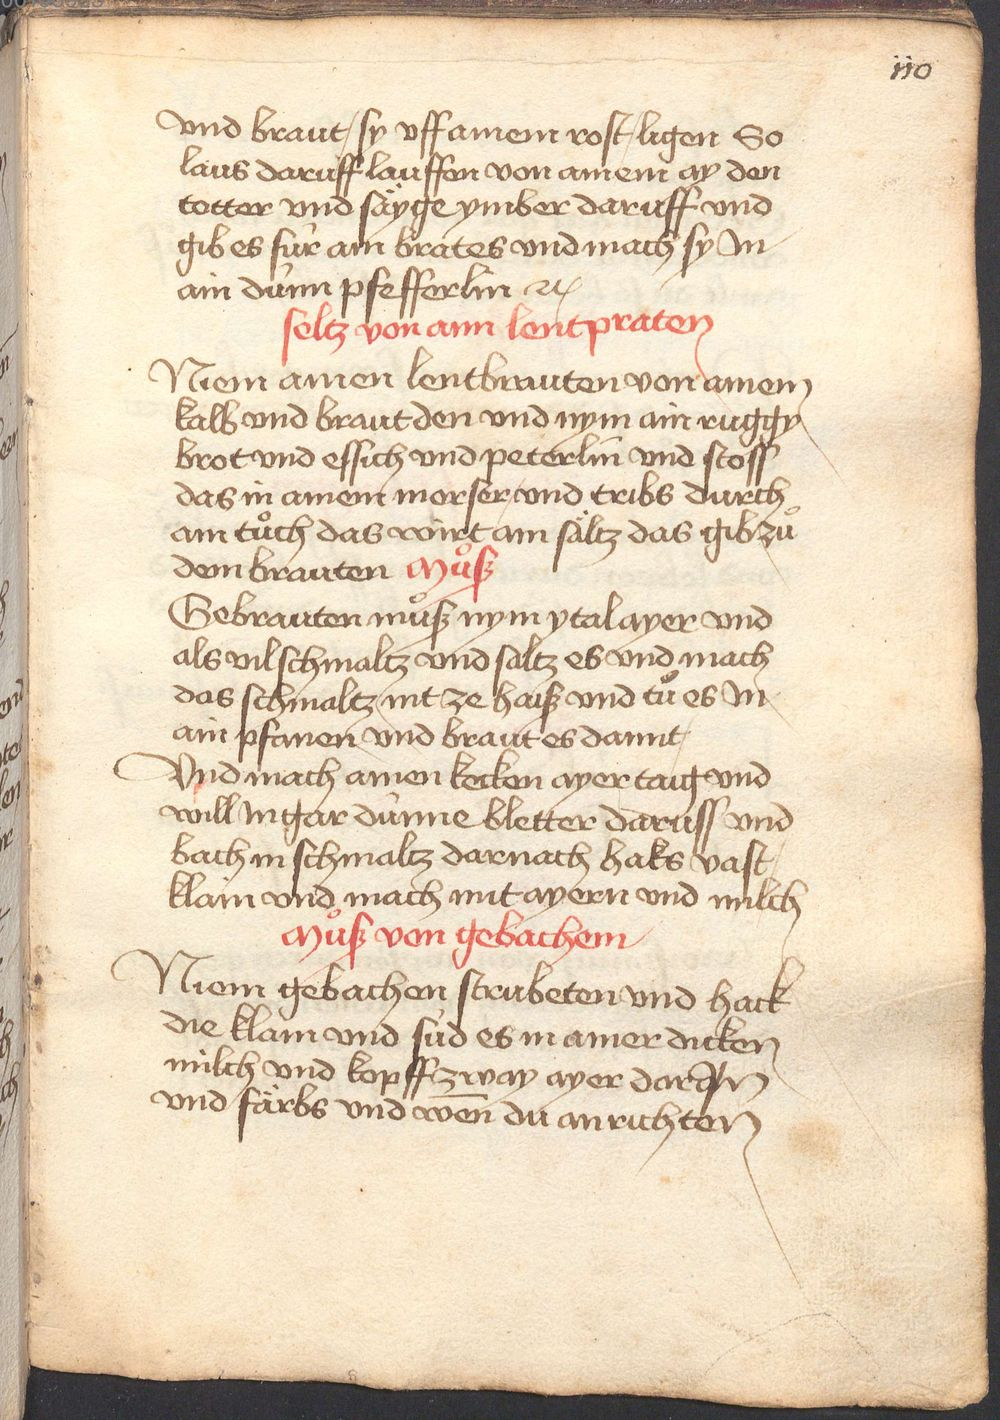 110
vnd braut sy vff ainem rost ligen So
laus daruff lauffen von ainem ay den
totter vnd säyge ymber daruff vnd
gib es für ain brates vnd mach sy In
ain dünn pfefferlin
seltz von ainn lentpraten
Niem ainen lentbrauten von ainem
kalb vnd braut den vnd nym ain ruggy
brot vnd essich vnd peterlin vnd stoss
das in ainem morser vnd tribs durch
ain tuͦch das wirt ain sältz das gib zuͦ
dem brauten Muͦß
Gebrauten muͦß nym ytal ayer vnd
als vil schmaltz vnd saltz es vnd mach
das schmaltz nit ze haiß vnd tuͦ es In
ain pfanen vnd braut es damit
Vnd mach ainen kecken ayer taig vnd
will In gar dünne bletter daruss vnd
bach in schmaltz darnach haks vast
klain vnd mach mit ayern vnd milch
Muͦß von gebachem
Niem gebachen strubeten vnd hack
die klain vnd süd es in ainer dicken
milch vnd kopff zway ayer daran
vnd färbs vnd wen̄ du anrichten